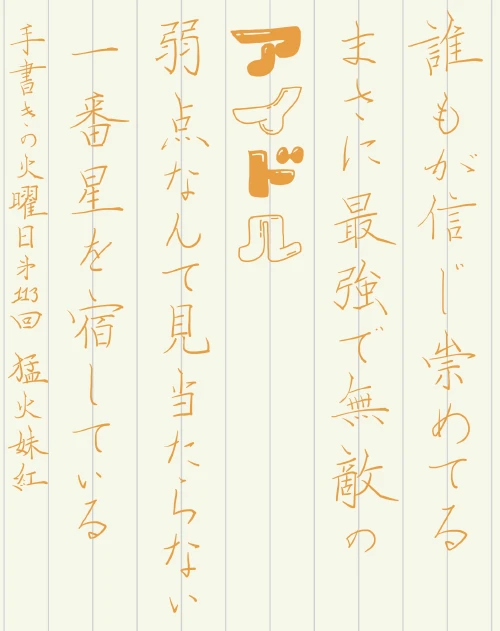 誰もが信じ崇めてる
まさに最強で無敵の
アイドル
弱点なんて見当たらない
一番星を宿している
手書きの火曜日第113回 猛火妹紅